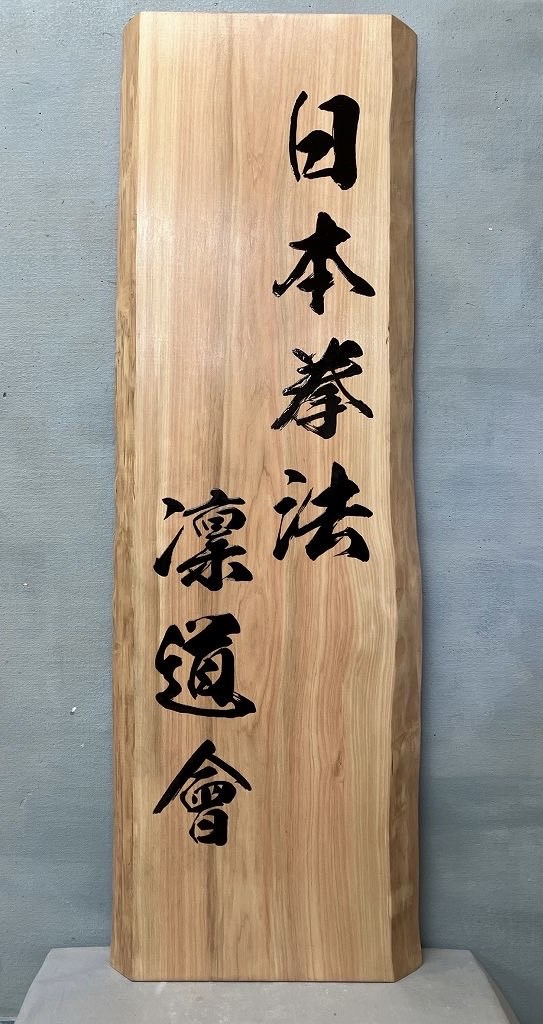 日本拳法
凛道會